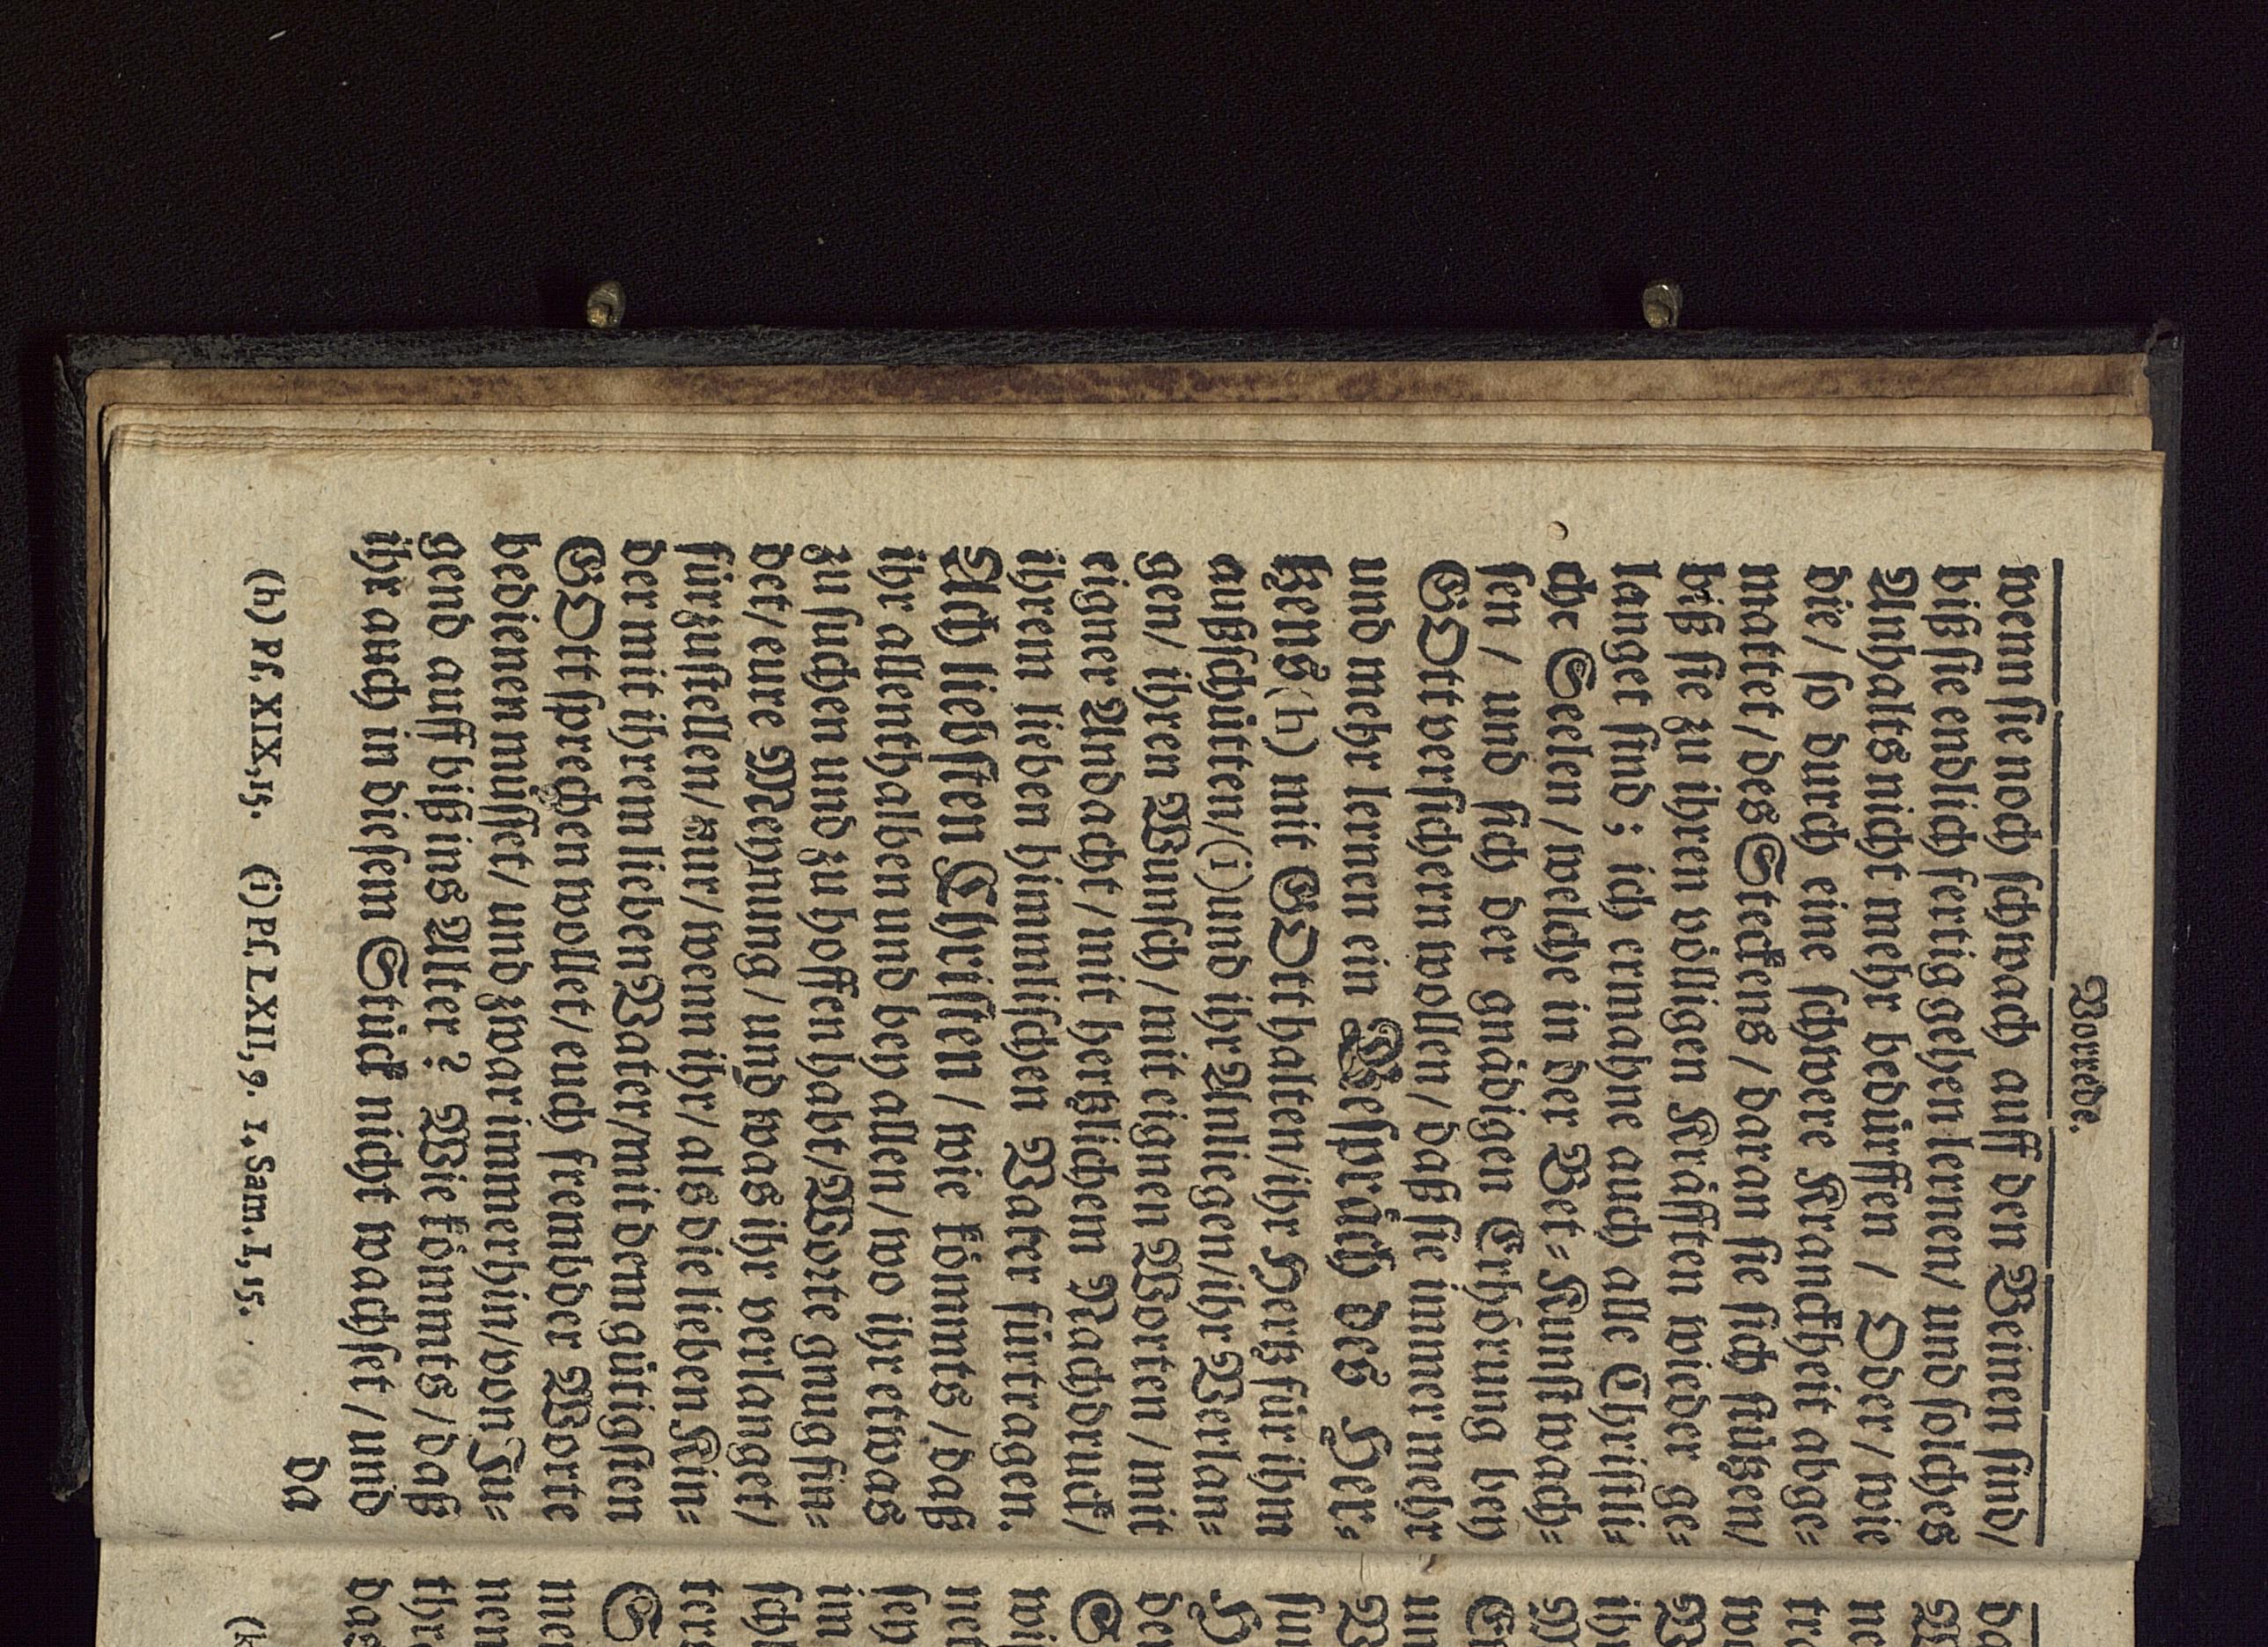 Vorrede.
wenn sie noch schwach auff den Beinen sind/
biß sie endlich fertig gehen lernen/ und solches
Anhalts nicht mehr bedürffen / Oder / wie
die / so durch eine schwere Kranckheit abge-
mattet / des Steckens / daran sie sich stützen/
biß sie zu ihren völligen Kräfften wieder ge-
langet sind ; ich ermahne auch alle Christli-
che Seelen / welche in der Bet-Kunst wach-
sen / und sich der gnädigen Erhörung bey
GOtt versichern wollen / daß sie immer mehr
und mehr lernen ein Gespräch des Her-
tzens (h) mit GOtt halten/ ihr Hertz für ihm
außschütten/ (i) und ihr Anliegen/ ihr Verlan-
gen/ ihren Wunsch / mit eignen Worten / mit
eigner Andacht / mit hertzlichem Nachdruck/
ihrem lieben himmlischen Vater fürtragen.
Ach liebsten Christen / wie kömmts / daß
ihr allenthalben und bey allen / wo ihr etwas
zu suchen und zu hoffen habt/ Worte gnug fin-
det/ eure Meynung / und was ihr verlanget/
fürzustellen/ nur/ wenn ihr/ als die lieben Kin-
der mit ihrem lieben Vater/ mit dem gütigsten
GOtt sprechen wollet/ euch frembder Worte
bedienen müsset/ und zwar immerhin/ von Ju-
gend auff biß ins Alter? Wie kömmts / daß
ihr auch in diesem Stück nicht wachset / und
da
(h) Ps. XIX, 15. (i) Ps. LXII, 9. 1. Sam. I, 15.